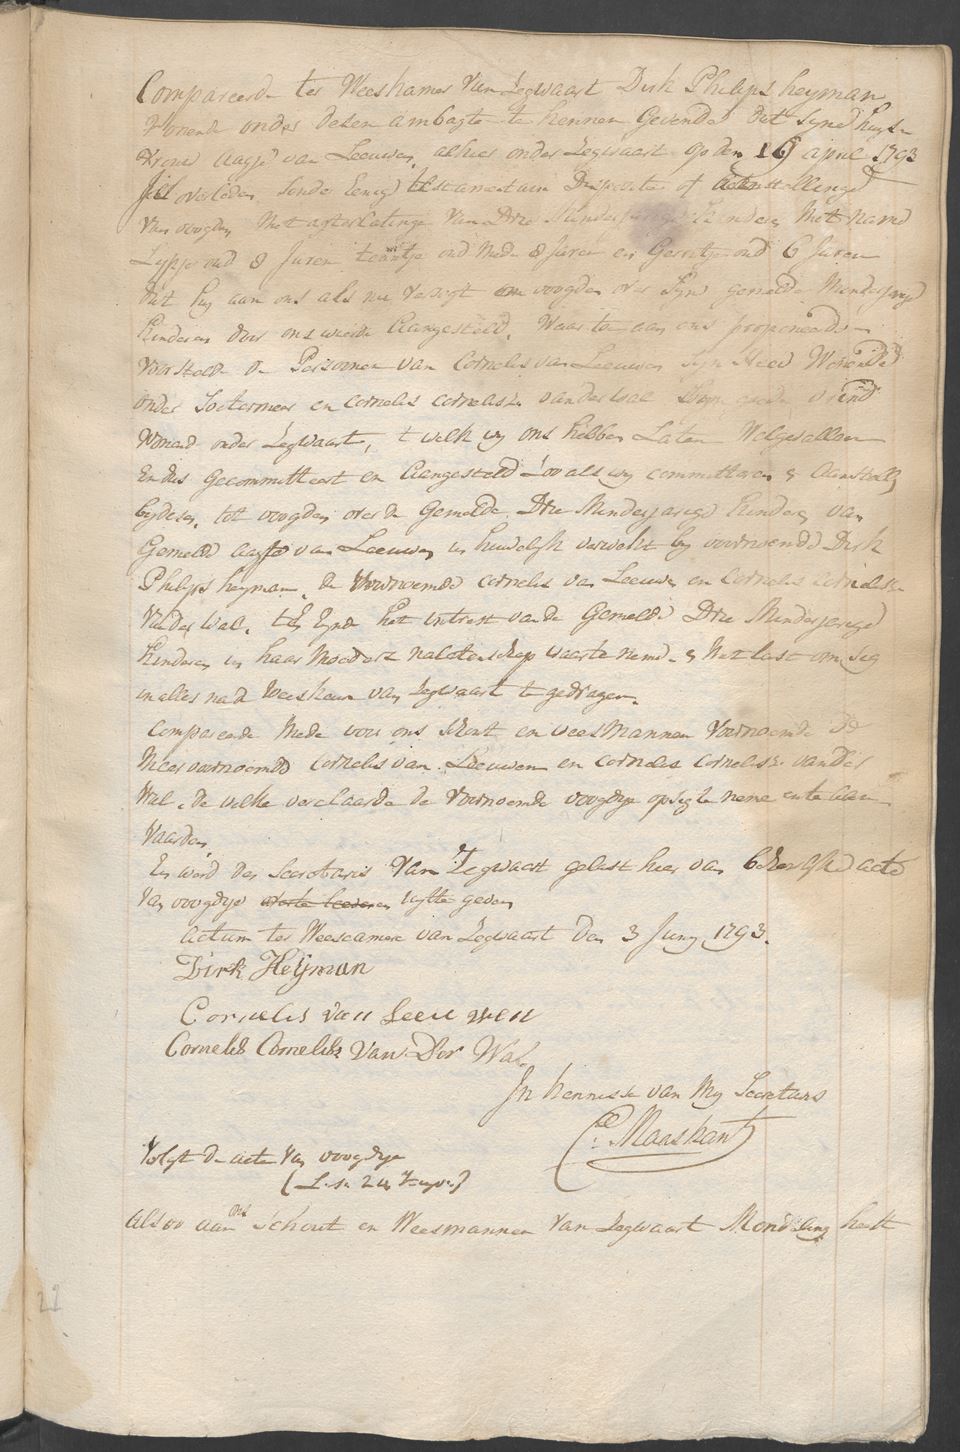 Compareerde ter Weeskamer van Zegwaart Dirk Philips heyman
Wonende onder desen ambagte te kennen Gevende dat Syne huys
vrouw Aagje van Leeuwen, alhier onder Zegwaart op den 16 april 1793
is overleden sonder Eenige testamentaire Dispositie of aenstellinge
van voogden met agterlatinge van Drie Minderjarige Kinderen Met name
Lijpje oud 8 Jaren oud Mede 8 Jaren en Gerritje oud 6 Jaren
dat hy aan ons als nu versogt om voogden over Syne gemelde Minderjarige
Kinderen door ons wierde Aangesteld, Waar toe aan ons proponeerde
voorstelde de Persoonen van Cornelis van Leeuwen syn Wonende
onder Soetermeer en Cornelis Cornelisz vander Wal Syn goede vriend
Wonend onder Zegwaart, 't welk wy ons hebben Laten Welgevallen
En dus Gecommitteert en Aangesteld Zoo als wy committeren & Aanstelle
bydesen, tot voogden over de Gemelde Drie Minderjarige Kinderen van
Gemelde Aagje van Leeuwen in huwelijk verwekt by voornoemde Dirk
Philips heyman, de Voornoemde Cornelis van Leeuwen en Cornelis Cornelisz
van der Wal, ten Eynde het intrest van de Gemelde Drie Minderjarige
Kinderen in haar Moeders nalatenschap waarte neme & Met last om sig
in alles na de Weeskeur van Zegwaart te gedragen.
Compareerde Mede voor ons Schout en weesmannen Voornoemde De
Meer voornoemde Cornelis van Leeuwen en Cornelis Cornelisz vander
Wal, de welke verclaarde de Voornoemde voogdye op sig te neme ente aen
vaarden
En werd der Secretaris van Zegwaart gelast hier van behoorlijke acte
van voogdye uytte geven
Actum ter Weescamere van Zegwaart den 3 Juny 1793.
Dirk Heijman
Cornelis van Leeuwen
Cornelis Cornelisz Van Der Wal
In kennisse van My Secretaris
C: Maaskant
Volgt de acte van voogdye
Alsoo aan ons Schout en Weesmannen van Zegwaart Mondeling heeft
22